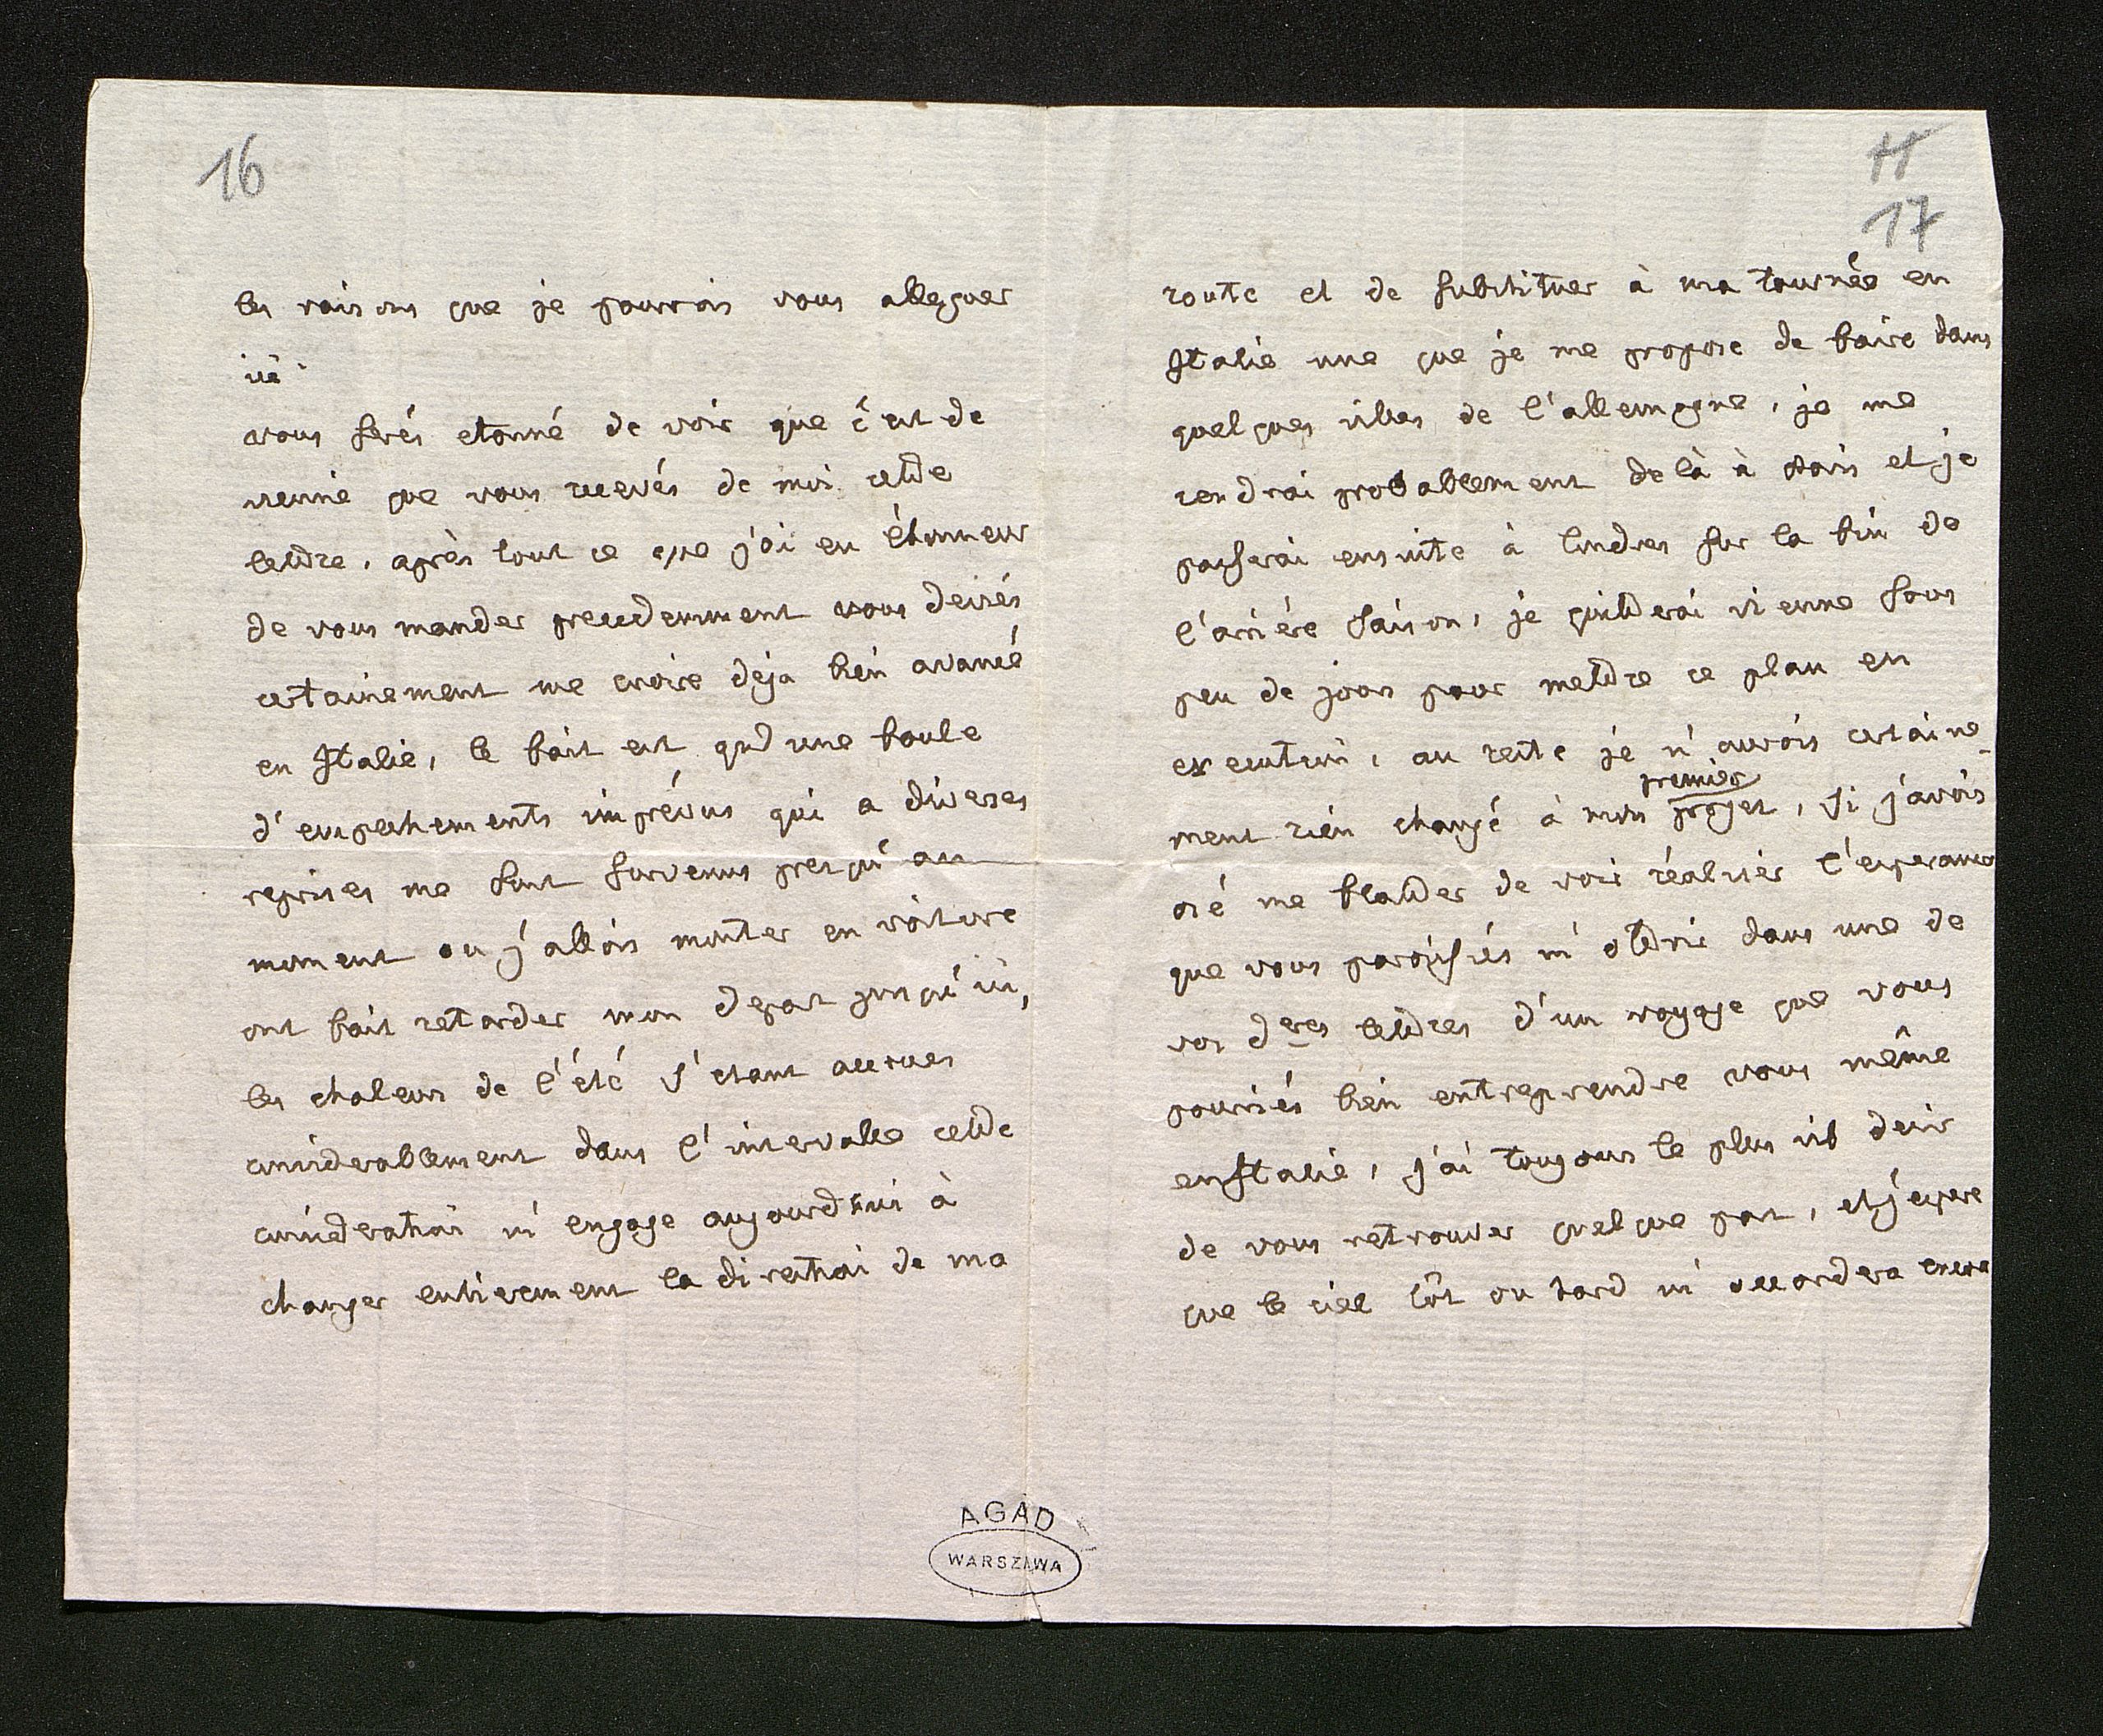 16
les raisons que je pourrois vous alleguer
ici.
vous serés etonné de voir que c'est de
vienne que vous recevés de moi cette
lettre, après tout ce que j'ai eu l'honneur
de vous mander precedemment vous deviés
certainement me croire deja bien avancé
en Italie, le fait est qu'une foule
d'empechements imprévus qui a diverses
reprises me sont survenus presqu'au
moment ou j'allois monter en voiture
ont fait retarder mon depart jusqu'ici,
les chaleurs de l'été s'etant accrues
considerablement dans l'intervalle cette
consideration m'engage aujourdhui à
changer entierement la direction de ma
11
17
route et de substituer à ma tournée en
Italie une que je me propose de faire dans
quelques villes de l'allemagne, je me
rendrai probablement de là à Paris et je
passerai ensuite à londres sur la fin de
l'arrière saison, je quitterai vienne sous
peu de jours pour mettre ce plan en
execution, au reste je n'aurois certaine-
premier
ment rien changé à mon projet, si j'avois
osé me flatter de voir réaliser l'esperance
que vous paroissiés m'offrir dans une de
vos dres lettres d'un voyage que vous
pourriés bien entreprendre vous même
en Italie, j'ai toujours le plus vif desir
de vous retrouver quelque part, et j'espere
que le ciel tôt ou tard m'accordera encore
AGAD
WARSZAWA